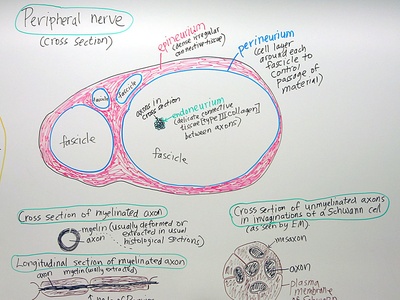 Peripheral nerve
(cross section)
epineurium
(dense irregular
connective tissue)
perineurium
(cell layer
around each
fascicle to
control
passage of
material)
fascicle
fascicle
axons in
cross section
endoneurium
(delicate connective
tissue [type III collagen]
between axons)
fascicle
fascicle
Cross section of myelinated axon
myelin (usually deformed or
axon extracted in usual
histological sections)
Longitudinal section of myelinated axon
axon myelin (usually extracted)
Cross section of unmyelinated axons
in invaginations of a Schwann cell
(as seen by EM)
mesaxon
axon
plasma
membrane